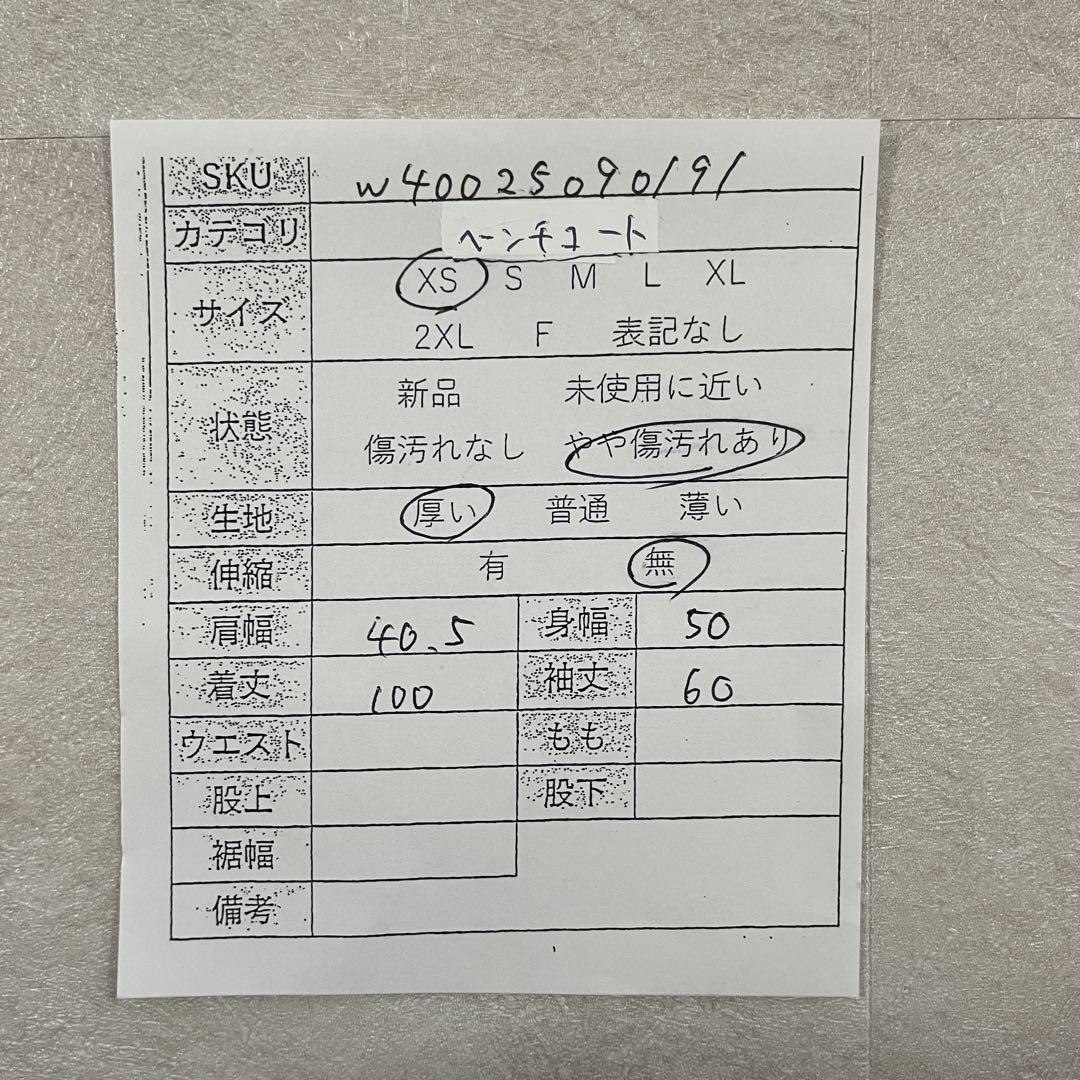 SKU w40025090191
カテゴリ ベンチコート
サイズ XS S M L XL
2XL F 表記なし
状態 新品 未使用に近い
傷汚れなし やや傷汚れあり
生地 厚い 普通 薄い
伸縮 有 無
肩幅 40.5 身幅 50
着丈 100 袖丈 60
ウエスト もも
股上 股下
裾幅
備考